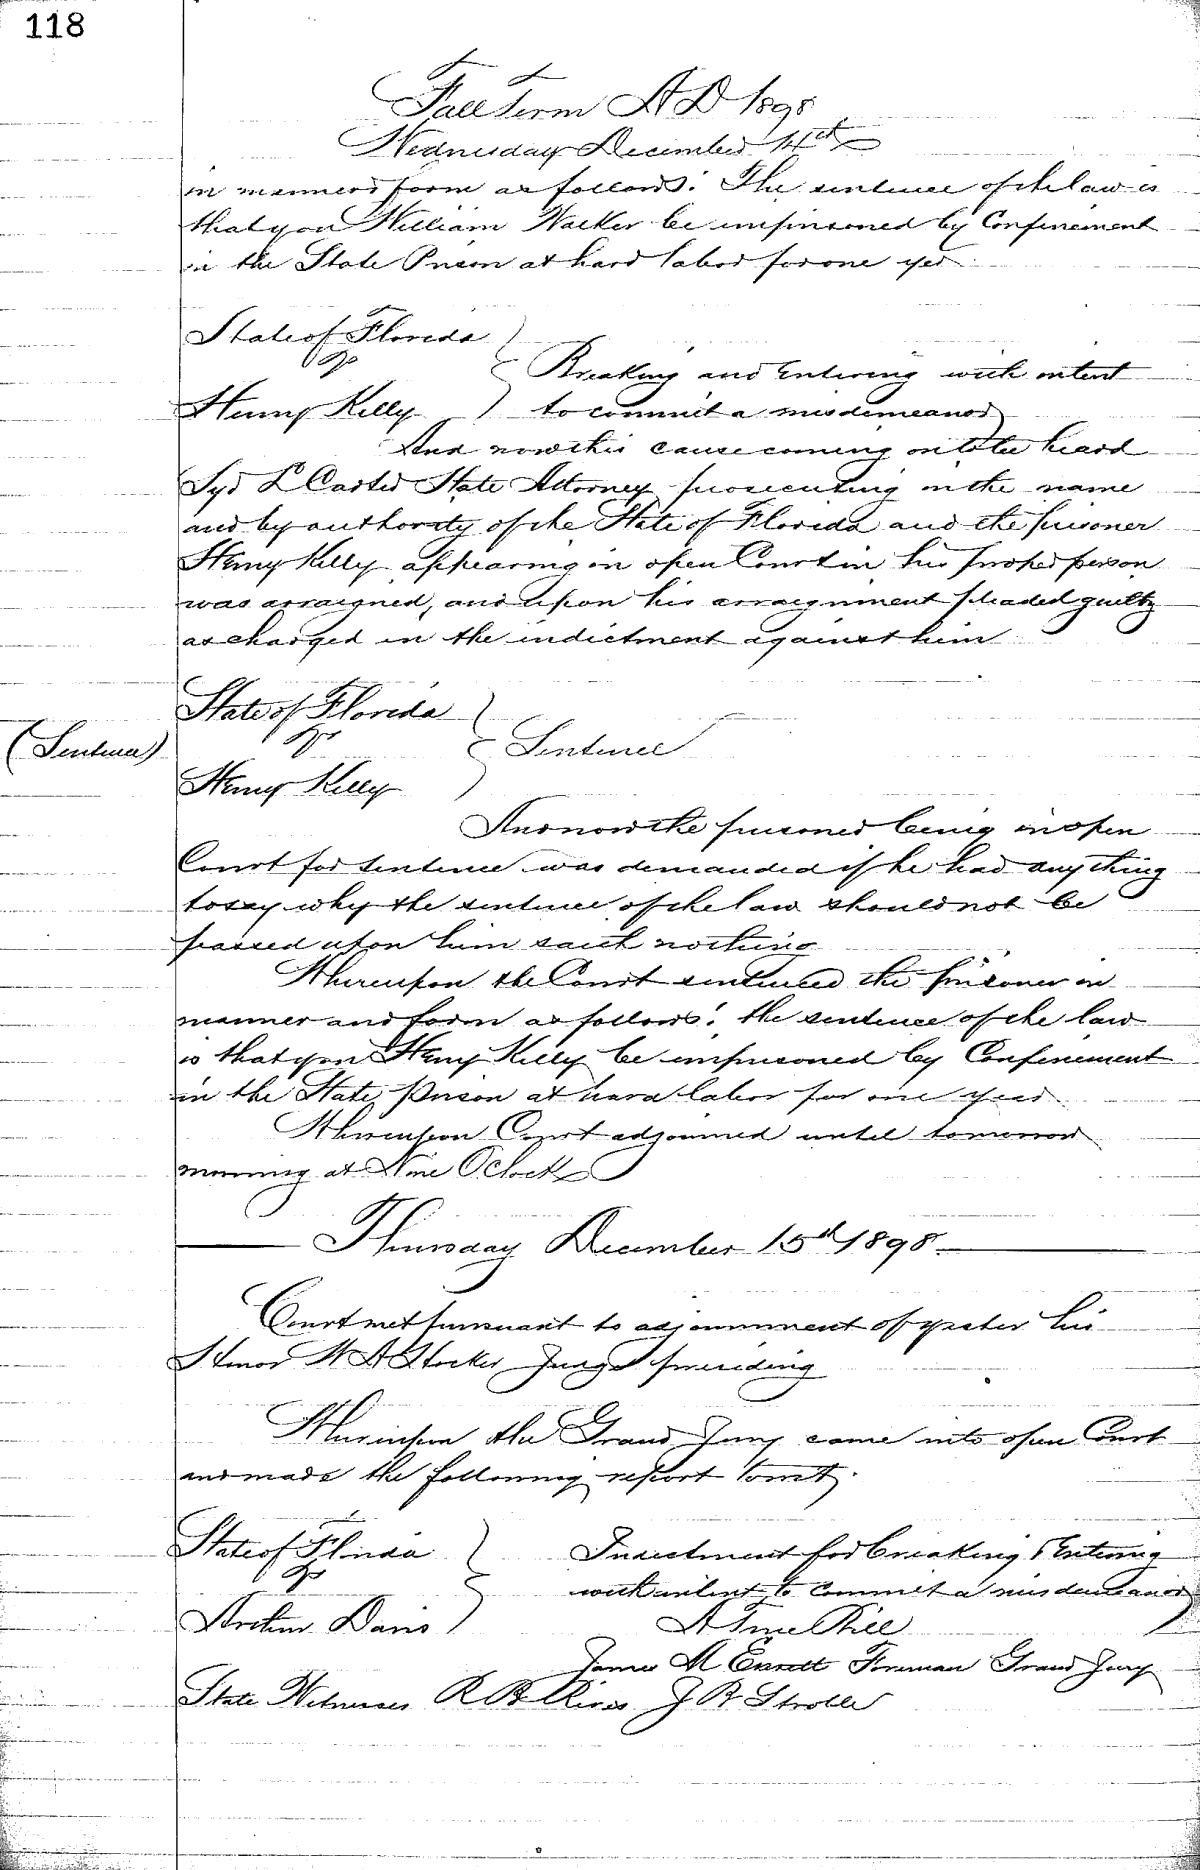 118
Fall Term A D 1898
Wednesday December 14th
in manner & form as follows: The sentence of the law is
that you William Walker be imprisoned by Confinement
in the State Prison at hard labor for one year
State of Florida
vs
Breaking and Entering with intent
Henry Kelly to commit a misdemeanor
And now this cause coming on to be heard
Syd L Carter State Attorney prosecuting in the name
and by authority of the State of Florida and the prisoner
Henry Kelly appearing in open Court in his proper person
was arraigned, and upon his arraignment pleaded guilty
as charged in the indictment against him
State of Florida
vs
(Sentence) Sentence
Henry Kelly
And now the prisoner being in open
Court for sentence was demanded if he had anything
to say why the sentence of the law should not be
passed upon him saith nothing
Whereupon the Court sentenced the prisoner in
manner and form as follows: the sentence of the law
is that you Henry Kelly be imprisoned by Confinement
in the State Prison at hard labor for one year
Whereupon Court adjourned until tomorrow
morning at Nine O'Clock
Thursday December 15th 1898
Court met pursuant to adjournment of yester his
Honor W A Hocker Judge presiding
Whereupon the Grand Jury came into open Court
and made the following report towit.
State of Florida Indictment for breaking & Entering
vs
with intent to commit a misdemeanor
Arthur Davis A True Bill
James M Foreman Grand Jury
State Witnesses R B J B